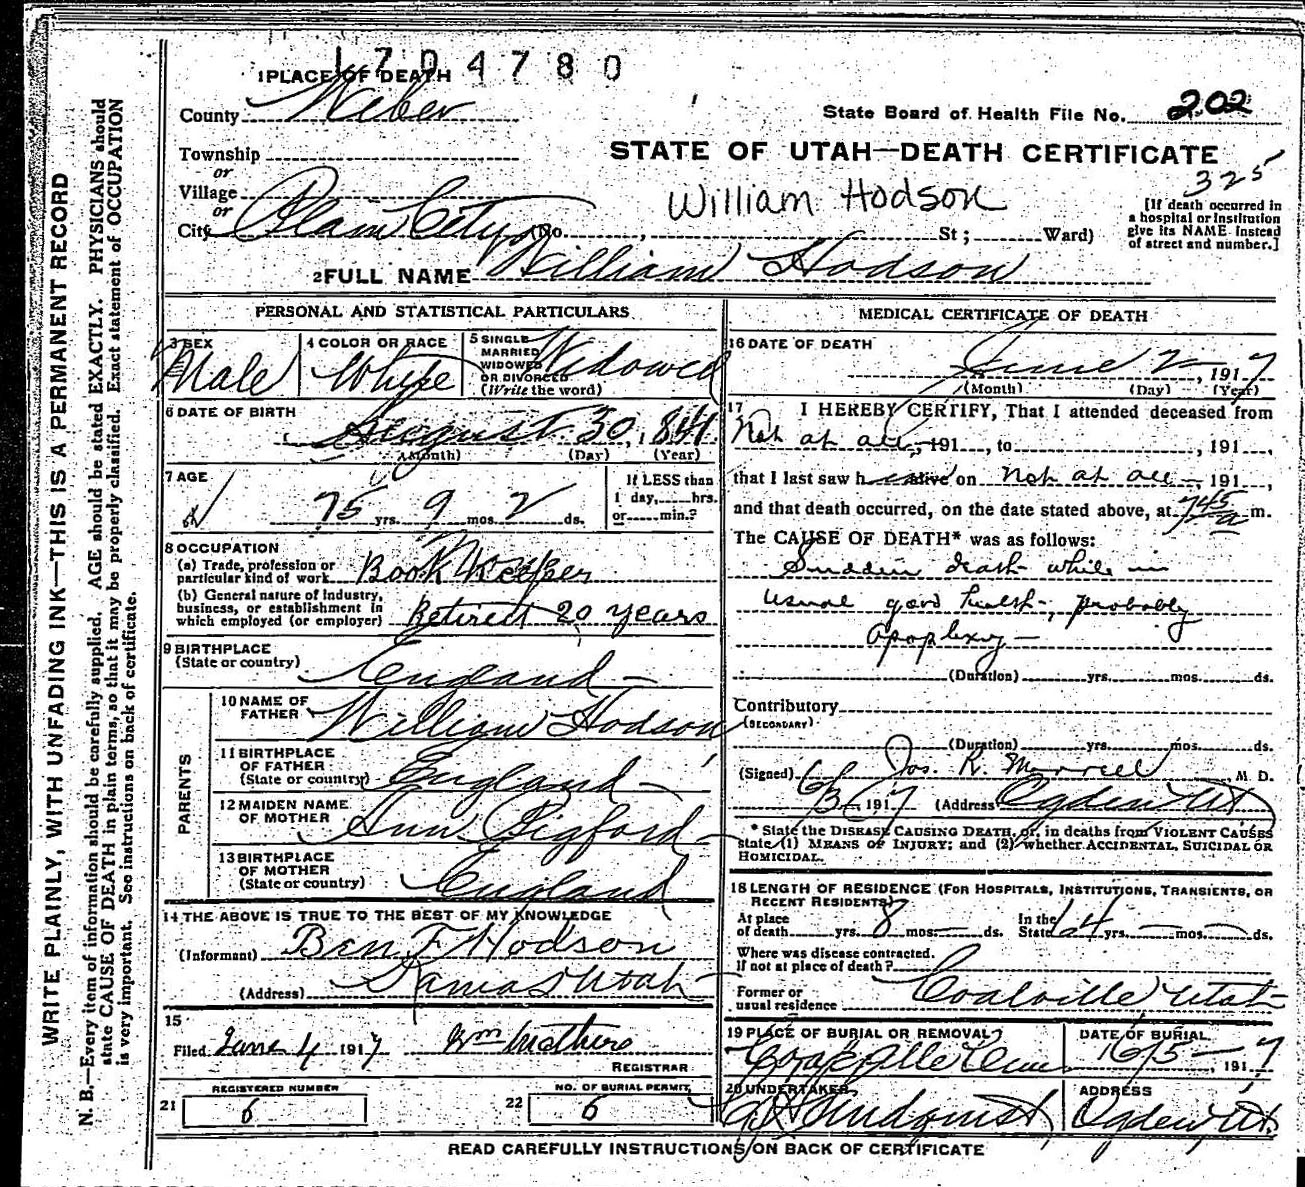 1704780
1 PLACE OF DEATH
County Weber
State Board of Health File No. 202
Township
or
Village
or
City Plain City (No. , St ; Ward)
STATE OF UTAH—DEATH CERTIFICATE
325
William Hodson
[If death occurred in
a hospital or institution
give its NAME instead
of street and number.]
2 FULL NAME William Hodson
PERSONAL AND STATISTICAL PARTICULARS
3 SEX
Male
4 COLOR OR RACE
White
5 SINGLE
MARRIED
WIDOWED
OR DIVORCED
(Write the word)
Widowed
6 DATE OF BIRTH
August 30, 1841
(Month) (Day) (Year)
7 AGE
75 yrs. 9 mos. 2 ds.
If LESS than
1 day, hrs.
or min.?
8 OCCUPATION
(a) Trade, profession or
particular kind of work Book Keeper
(b) General nature of Industry,
business, or establishment in
which employed (or employer) Retired 20 years
9 BIRTHPLACE
(State or country) England
PARENTS
10 NAME OF
FATHER William Hodson
11 BIRTHPLACE
OF FATHER
(State or country) England
12 MAIDEN NAME
OF MOTHER Ann Pigford
13 BIRTHPLACE
OF MOTHER
(State or country) England
14 THE ABOVE IS TRUE TO THE BEST OF MY KNOWLEDGE
(Informant) Ben F Hodson
(Address) Kamas Utah
15
Filed June 4 1917 Wm
REGISTRAR
REGISTERED NUMBER
21 6
NO. OF BURIAL PERMIT
22 6
MEDICAL CERTIFICATE OF DEATH
16 DATE OF DEATH
June 2, 1917
(Month) (Day) (Year)
17 I HEREBY CERTIFY, That I attended deceased from
Not at all, 191 , to , 191 ,
that I last saw h alive on Not at all, 191 ,
and that death occurred, on the date stated above, at 7 45 a m.
The CAUSE OF DEATH* was as follows:
Sudden death while in
usual good health, probably
apoplexy
(Duration) yrs. mos. ds.
Contributory
(SECONDARY)
(Duration) yrs. mos. ds.
(Signed) Jos. R. Morrell, M. D.
6/3 1917 (Address) Ogden Ut
* State the DISEASE CAUSING DEATH, or, in deaths from VIOLENT CAUSES
state (1) MEANS OF INJURY; and (2) whether ACCIDENTAL, SUICIDAL OR
HOMICIDAL.
18 LENGTH OF RESIDENCE (FOR HOSPITALS, INSTITUTIONS, TRANSIENTS, OR
RECENT RESIDENTS)
At place
of death yrs. 8 mos. ds.
In the
State 64 yrs. mos. ds.
Where was disease contracted.
If not at place of death?
Former or
usual residence Coalville Utah
19 PLACE OF BURIAL OR REMOVAL
Coalville
DATE OF BURIAL
6/5 1917
20 UNDERTAKER
Lindquist
ADDRESS
Ogden Ut.
READ CAREFULLY INSTRUCTIONS ON BACK OF CERTIFICATE
WRITE PLAINLY, WITH UNFADING INK—THIS IS A PERMANENT RECORD
N. B.—Every item of information should be carefully supplied. AGE should be stated EXACTLY. PHYSICIANS should
state CAUSE OF DEATH in plain terms, so that it may be properly classified. Exact statement of OCCUPATION
is very important. See instructions on back of certificate.